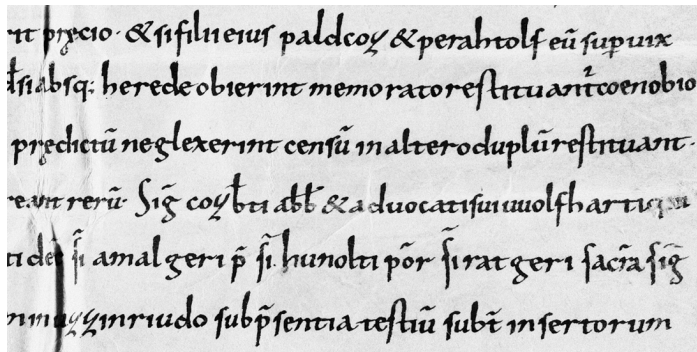 rit p̱recio · & si filii eius paldcoȝ & perahtolf eū sup uix
d̄ si absq; herede obierint memorato restituant̄ coenobio
predictū neglexerint censū in altero duplū restituant·
reant rerū· Sig̃ coȝb̄ti abb̄ & aduocati sui uuolfharti
ti det̄ s̄i amalgeri p̄ s̄i hunolti pōr s̄i ratgeri sacr̄a sig̃
inriudo sub p̄sentia testiū subt̄ insertorum